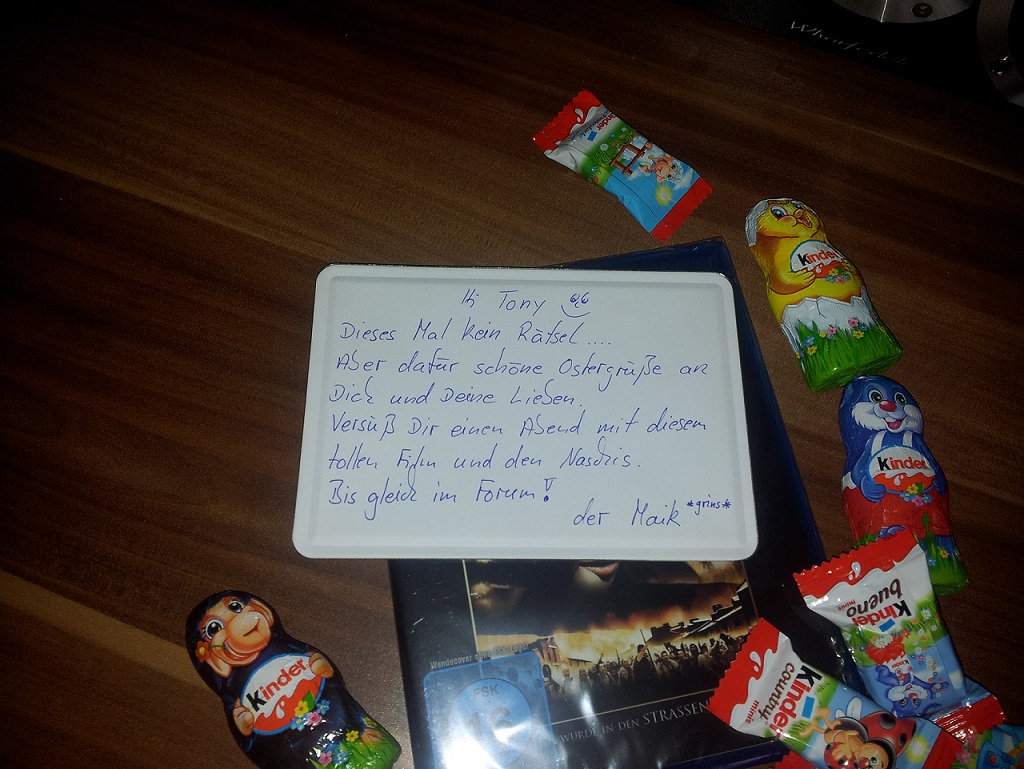 Wharfedale
Kinder
Kinder
Hi Tony
Dieses Mal kein Rätsel....
Aber dafür schöne Ostergrüße an
Dich und Deine Lieben.
Versüß Dir einen Abend mit diesem
tollen Film und den Naschis.
Bis gleich im Forum!
der Maik *grins*
Kinder
Kinder
bueno
minis
Kinder
country
minis
Wendecover ohne FSK-Logo
FSK
WURDE IN DEN STRASSEN